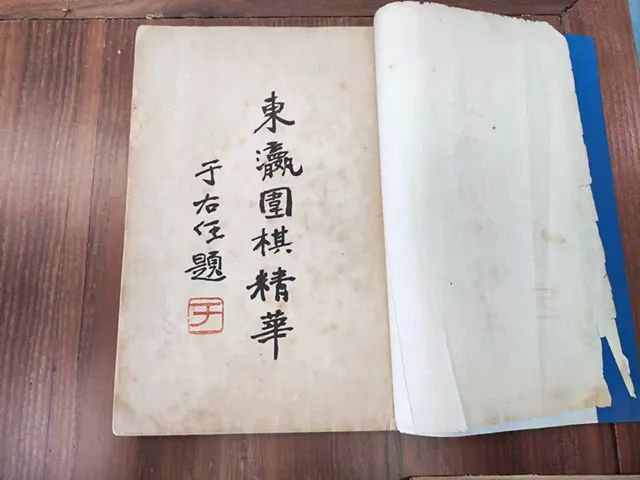 東瀛圍棋精華
于右任題
于